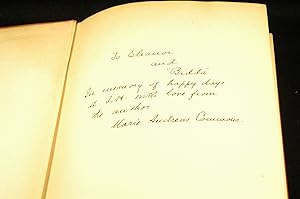 To Eleanor
and
"Bidda"
In memory of happy days
at I.H. with love from
the author
Marie Andrews Commons.